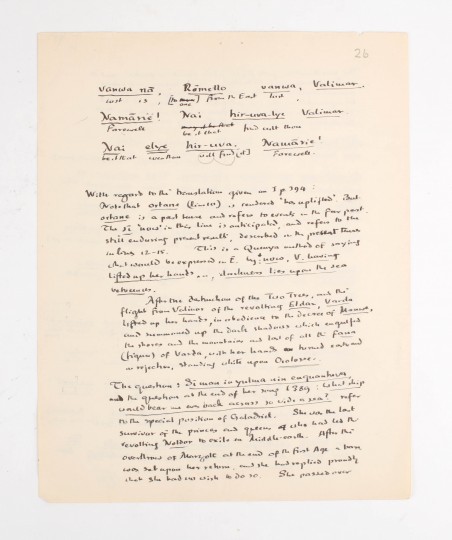 26
vanwa nā, Rōmello vanwa, Valimar.
lost is, from the East lost,
one
Namárië! Nai hir-uva-lye Valimar
Farewell be it that find wilt thou
Nai elye hir-uva. Namárië!
be it that even thou will find [it] Farewell.
With regard to the translation given on I p 394:
Note that ortane (line 10) is rendered 'has uplifted'. But
ortane is a past tense and refers to events in the far past.
The sí 'now' in this line is anticipated, and refers to the
still enduring present result, described in the present tense
in lines 12-15. This is a Quenya method of saying
what would be expressed in E. by: now, V. having
lifted up her hands ..., darkness lies upon the sea
After the destruction of the Two Trees, and the
flight from Valinor of the revolting Eldar, Varda
lifted up her hands, in obedience to the decree of Manwe,
and summoned up the dark shadows which engulfed
the shores and the mountains and last of all the fana
(figure) of Varda, with her hands turned eastward
in rejection, standing white upon Oiolosse.
The question: Si man i yulma nin enquantuva,
and the question at the end of her song I 389: What ship
would bear me ever back across so wide a sea? refer
to the special position of Galadriel. She was the last
survivor of the princes and queens who had led the
revolting Noldor to exile in Middle-earth. After the
overthrow of Morgoth at the end of the First Age a ban
was set upon her return, and she had replied proudly
that she had no wish to do so. She passed over